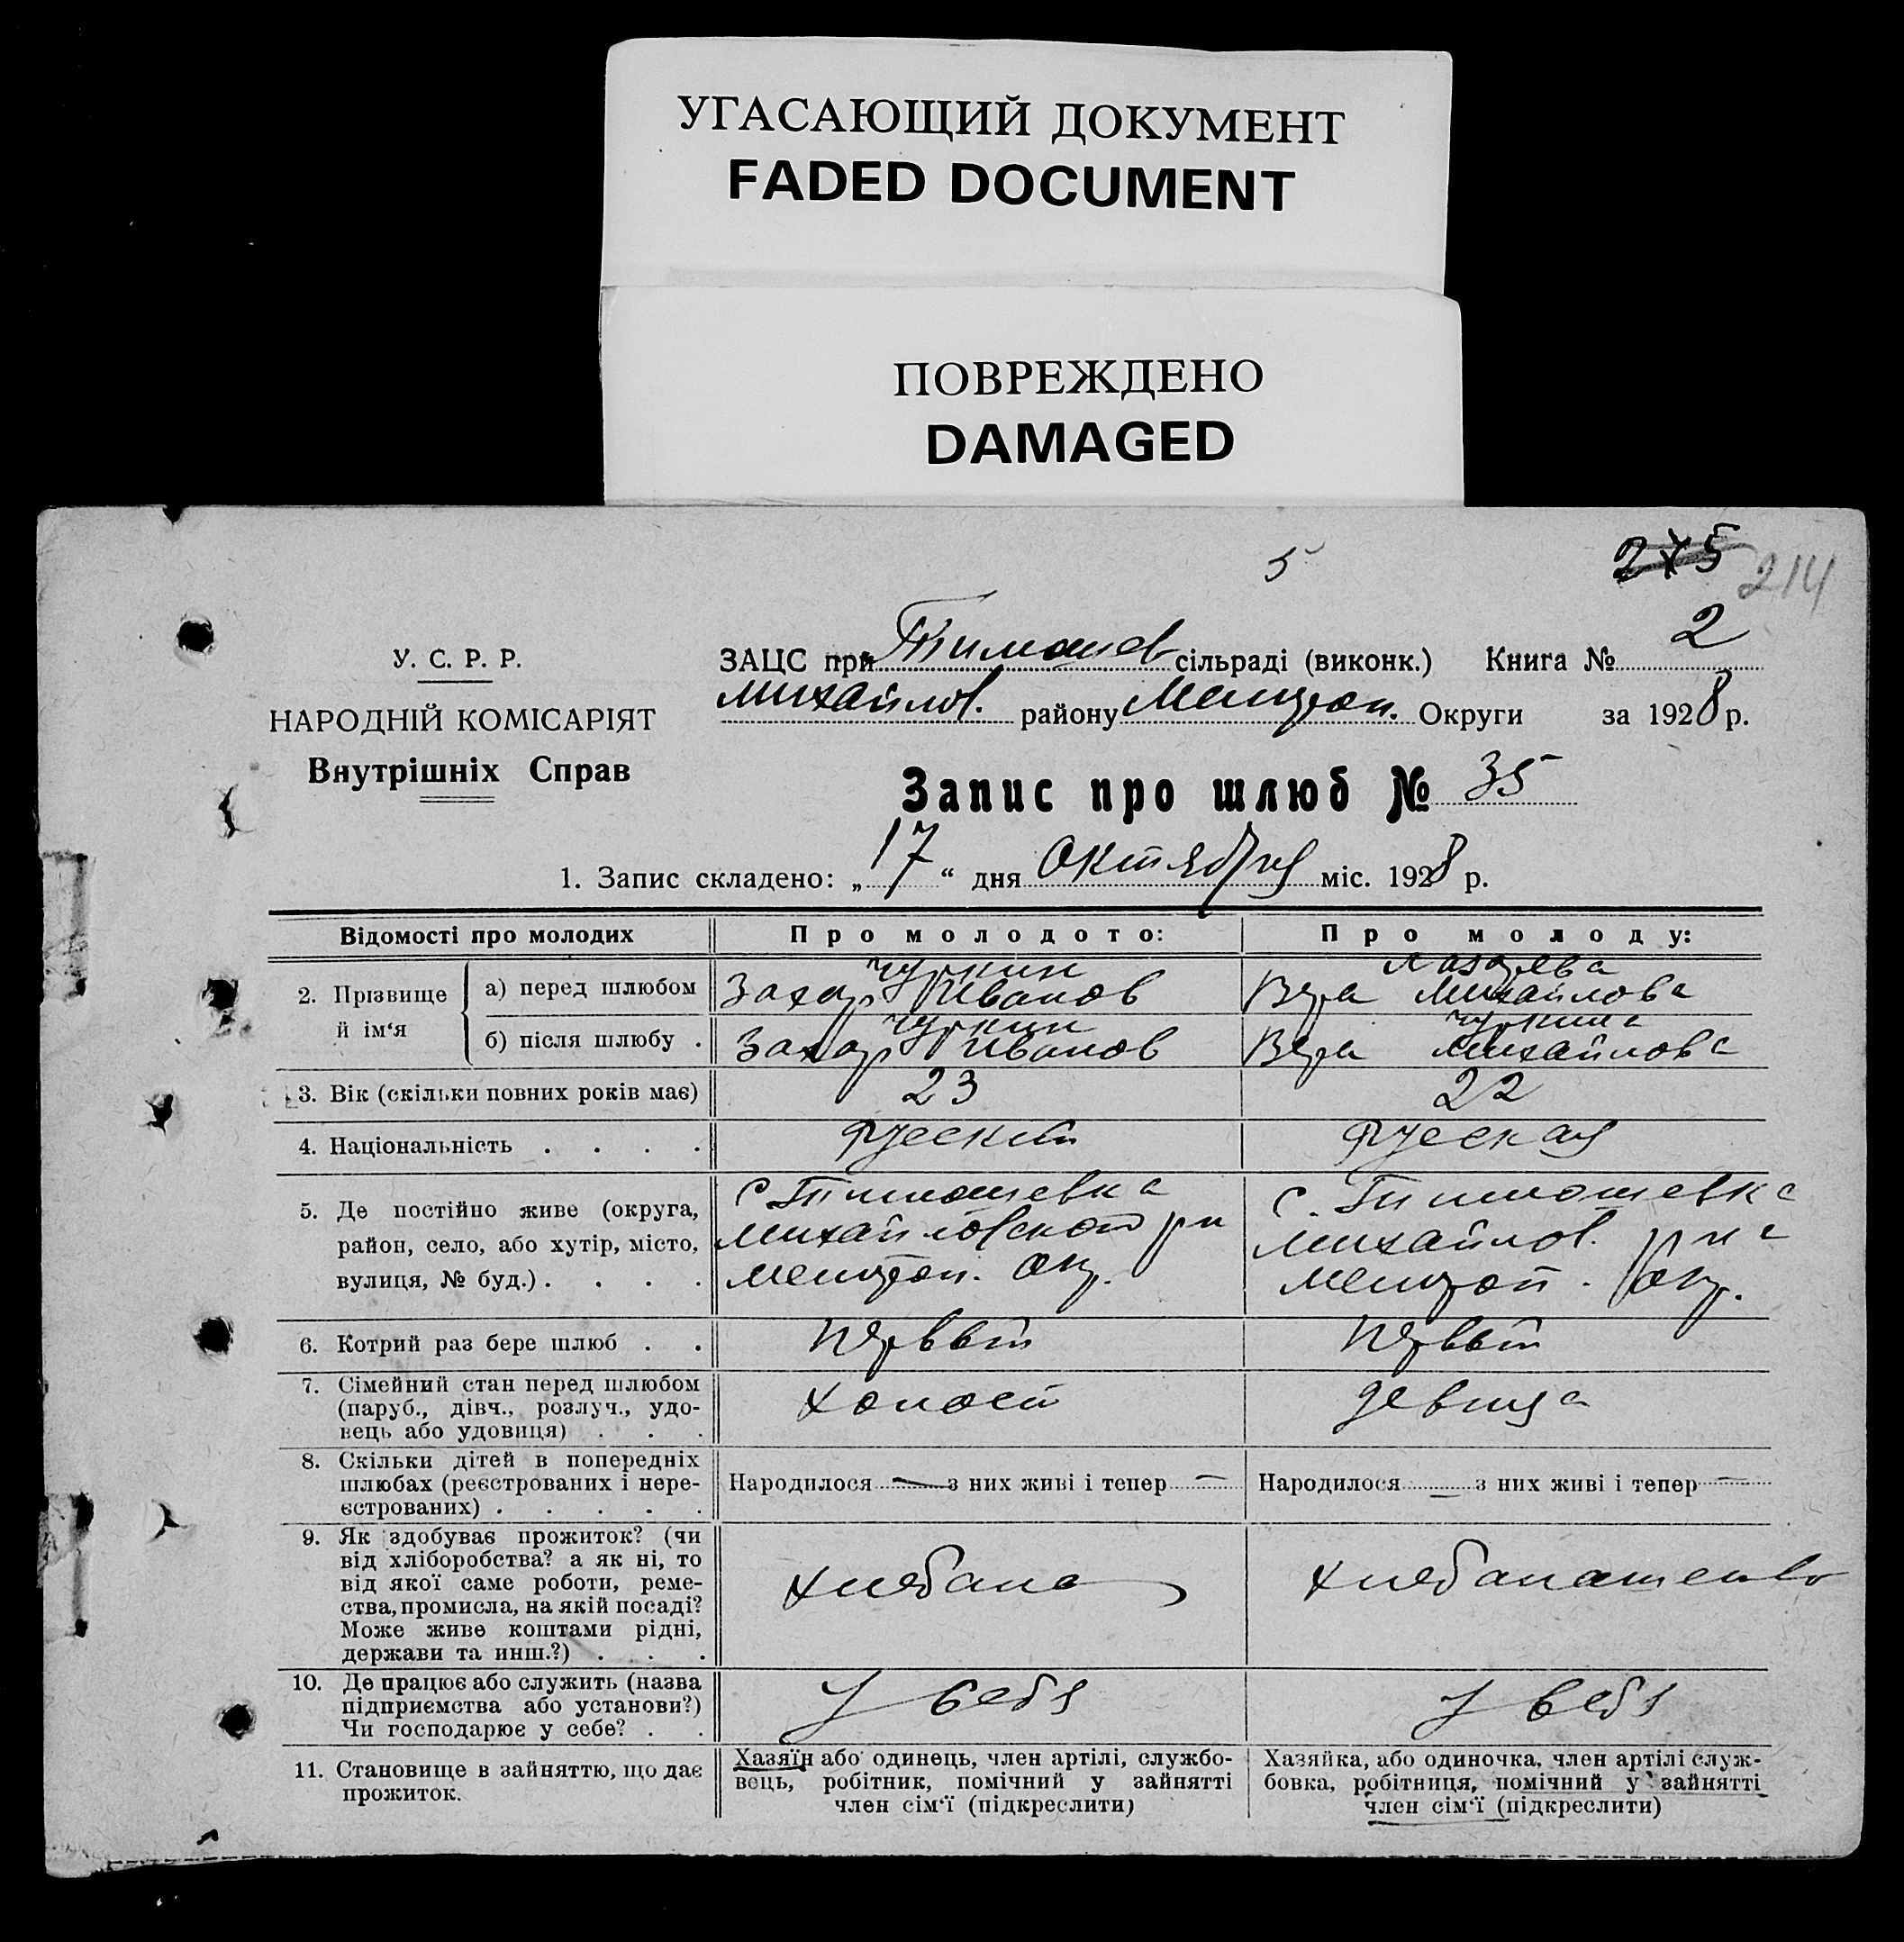 УГАСАЮЩИЙ ДОКУМЕНТ
FADED DOCUMENT
ПОВРЕЖДЕНО
DAMAGED
5
275 214
У. С. Р. Р.
НАРОДНІЙ КОМІСАРІЯТ
Внутрішніх Справ
ЗАЦС при Тимошев сільраді (виконк.) Книга № 2
Михайлов. району Мелитоп. Округи за 1928 р.
Запис про шлюб № 35
1. Запис складено: „17“ дня Октября міс. 1928 р.
Відомості про молодих
Про молодого:
Про молоду:
2. Прізвище й ім‘я
а) перед шлюбом
Чуркин
Захар Иванов
Лазарева
Вера Михайлова
б) після шлюбу .
Чуркин
Захар Иванов
Чуркина
Вера Михайлова
3. Вік (скільки повних років має)
23
22
4. Національність . . . .
Руский
Руская
5. Де постійно живе (округа,
район, село, або хутір, місто,
вулиця, № буд.) . . . .
с. Тимошевка
Михайловской р-н
Мелитоп. Окр.
с. Тимошевка
Михайлов. р-на
Мелитоп. Окр.
6. Котрий раз бере шлюб . .
Первый
Первый
7. Сімейний стан перед шлюбом
(паруб., дівч., розлуч., удо-
вець або удовиця) . . .
Холост
Девица
8. Скільки дітей в попередніх
шлюбах (реєстрованих і нере-
єстрованих) . . . . .
Народилося — з них живі і тепер —
Народилося — з них живі і тепер —
9. Як здобуває прожиток? (чи
від хліборобства? а як ні, то
від якої саме роботи, реме-
ства, промисла, на якій посаді?
Може живе коштами рідні,
держави та инш.?) . . .
Хлебопа
Хлебопашество
10. Де працює або служить (назва
підприємства або установи?)
Чи господарює у себе? . .
У себя
У себя
11. Становище в зайняттю, що дає
прожиток.
Хазяїн або одинець, член артілі, службо-
вець, робітник, помічний у зайнятті
член сім‘ї (підкреслити)
Хазяйка, або одиночка, член артілі служ-
бовка, робітниця, помічний у зайнятті
член сім‘ї (підкреслити)